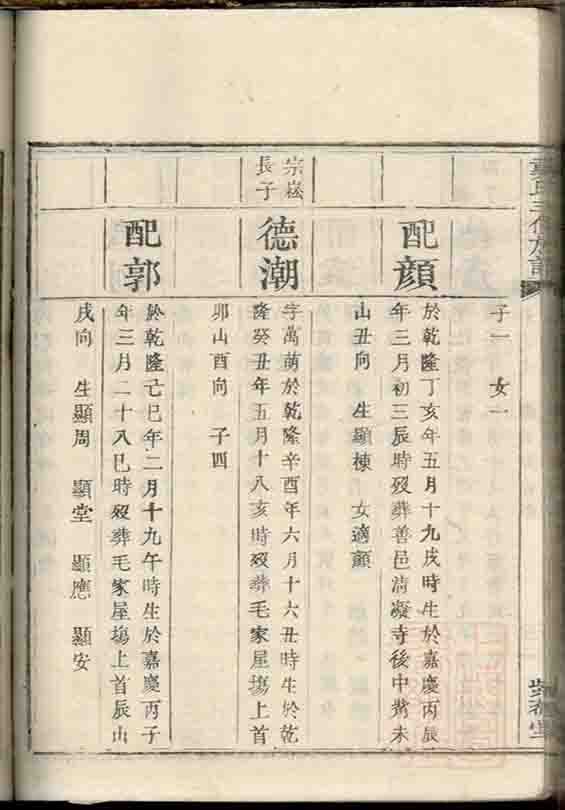 子一　女一
配顏
於乾隆丁亥年五月十九戌時生於嘉慶丙辰
年三月初三辰時歿葬善邑清凝寺後中嘴未
山丑向　生顯棟　女適顏
宗崧
長子
德潮
字萬萌於乾隆辛酉年六月十六丑時生於乾
隆癸丑年五月十八亥時歿葬毛家屋塲上首
卯山酉向　子四
配郭
於乾隆己巳年二月十九午時生於嘉慶丙子
年三月二十八巳時歿葬毛家屋塲上首辰山
戌向　生顯周　顯堂　顯應　顯安